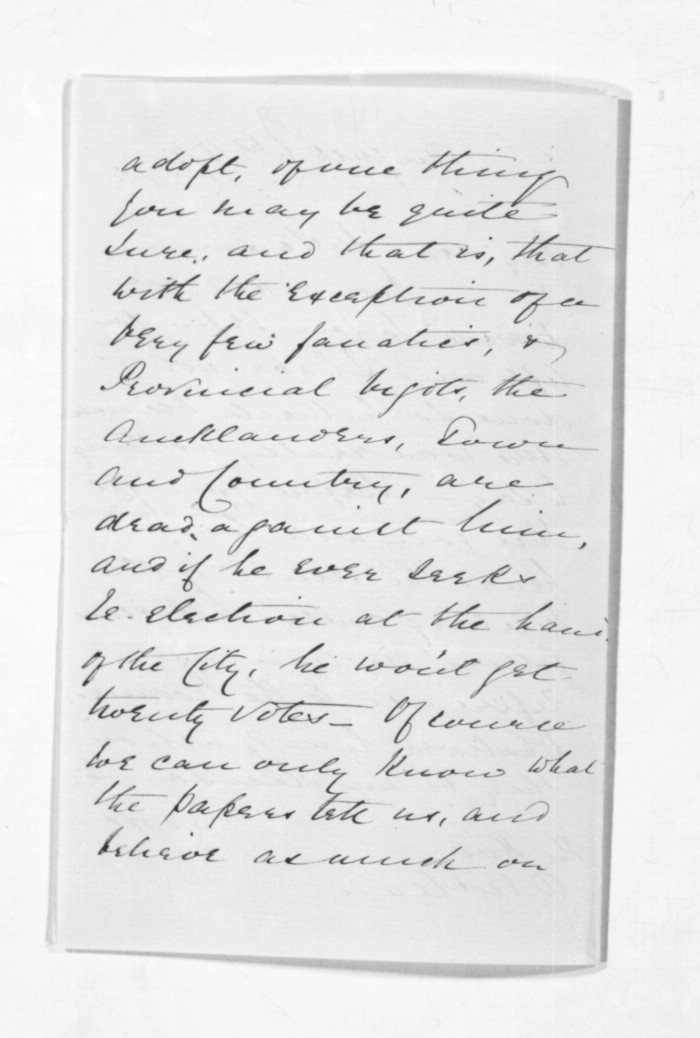 adopt, of one thing
you may be quite
sure, and that is, that
with the exception of a
very few fanatics, &
Provincial bigots, the
Aucklanders, Town
and Country, are
dead against him,
and if he ever seeks
re-election at the hands
of the City, he won't get
twenty votes_ Of course
we can only know what
the papers tell us, and
believe as much or